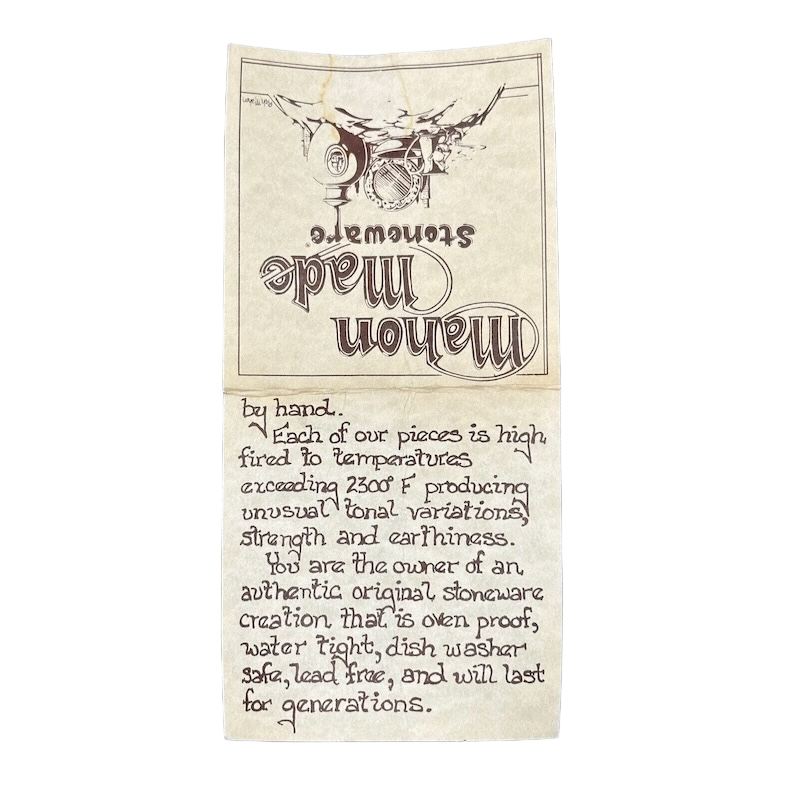 Mahon
Made
Stoneware
by hand.
Each of our pieces is high
fired to temperatures
exceeding 2300° F producing
unusual tonal variations,
strength and earthiness.
You are the owner of an
authentic original stoneware
creation that is oven proof,
water tight, dish washer
safe, lead free, and will last
for generations.